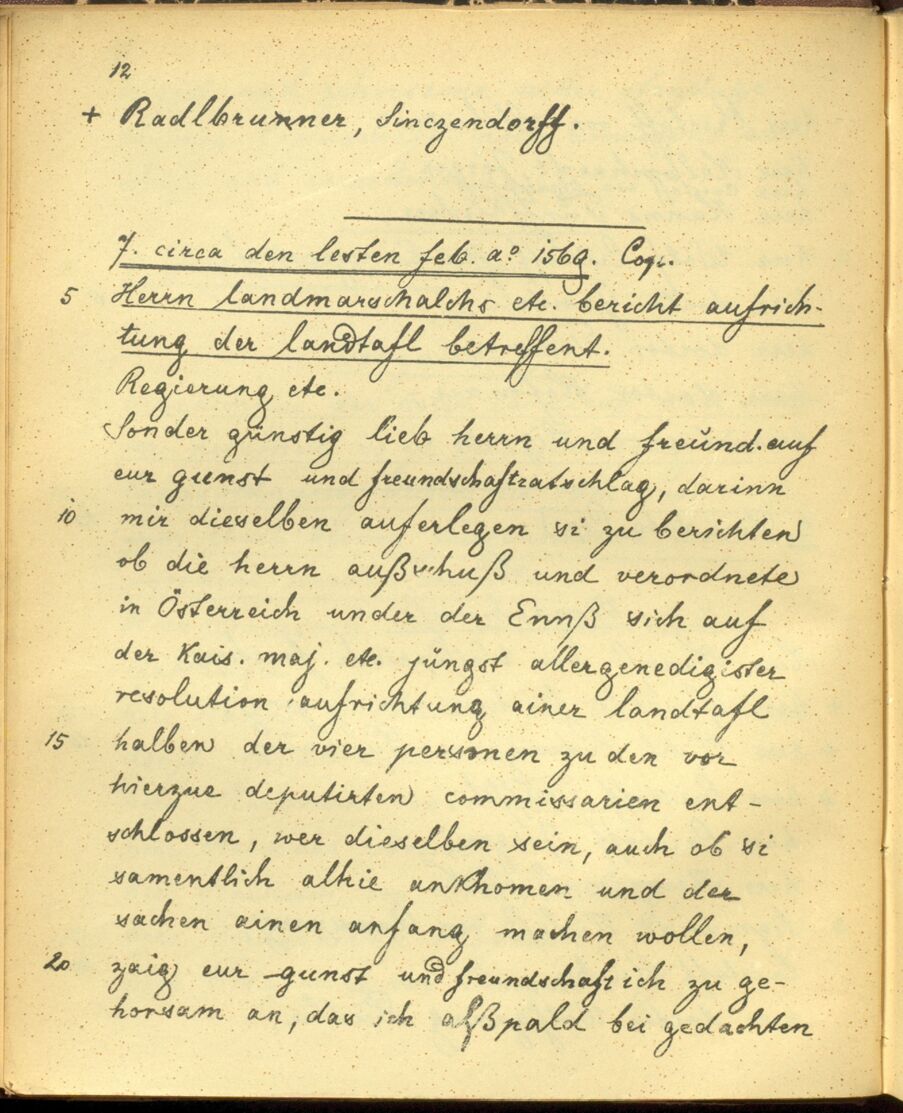 12
+ Radlbrunner, Sinczendorff.
7. circa den lesten feb. aº 1569. Cop.
5 Herrn landmarschalchs etc. bericht aufrich-
tung der landtafl betreffent.
Regierung etc.
Sonder günstig lieb herrn und freünd. auf
eur gunst und freundschaft ratschlag, darinn
10 mir dieselben auferlegen si zu berichten
ob die herrn außschuß und verordnete
in Österreich under der Ennß sich auf
der Kais. maj. etc. jüngst allergenedigister
resolution aufrichtung ainer landtafl
15 halben der vier personen zu den vor
hierzue deputirten commissarien ent-
schlossen, wer dieselben sein, auch ob si
samentlich alhie ankhomen und der
sachen ainen anfang machen wollen,
20 zaig eur gunst und freundschaft ich zu ge-
horsam an, das ich alßpald bei gedachten